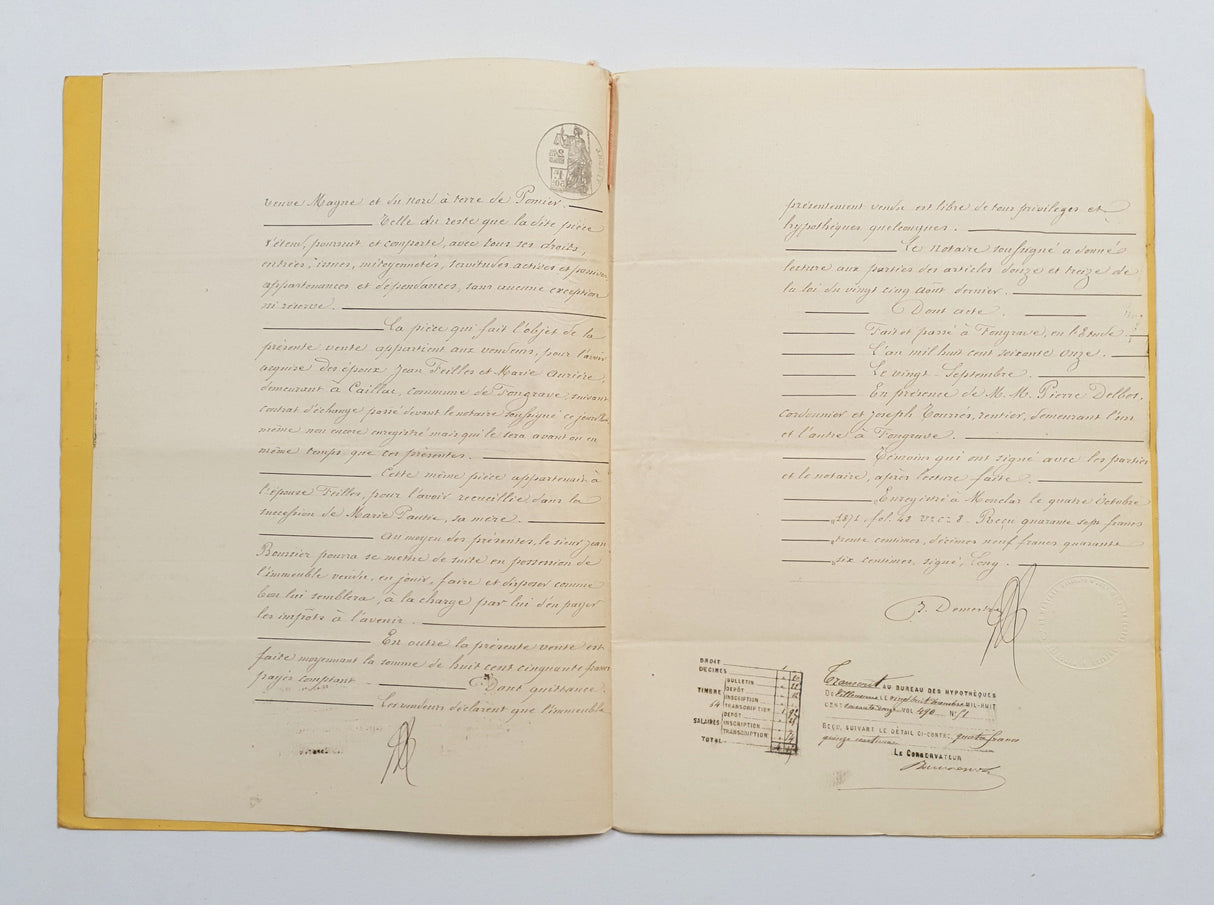 veuve Magne et du nord à terre de Pomier.
Telle du reste que la dite pièce
s'étend, poursuit et comporte, avec tous ses droits,
entrées, issues, mitoyennetés, servitudes actives et passives
appartenances et dépendances, sans aucune exception
ni réserve.
La pièce qui fait l'objet de la
présente vente appartient aux vendeurs, pour l'avoir
acquise des époux Jean Feilles et Marie
demeurant à Caillac, commune de Fongrave, suivant
contrat d'échange passé devant le notaire soussigné ce jourd'hui
même non encore enregistré mais qui le sera avant ou en
même temps que ces présentes.
Cette même pièce appartenait à
l'épouse Feilles, pour l'avoir recueillie dans la
succession de Marie Pautie, sa mère.
Au moyen des présentes, le sieur Jean
Boussier pourra se mettre de suite en possession de
l'immeuble vendu, en jouir, faire et disposer comme
bon lui semblera, à la charge par lui d'en payer
les impôts à l'avenir.
En outre la présente vente est
faite moyennant la somme de huit cent cinquante francs
payés comptant. Dont quittance.
Les vendeurs déclarent que l'immeuble
présentement vendu est libre de tous privilèges et
hypothèques quelconques.
Le notaire soussigné a donné
lecture aux parties des articles douze et treize de
la loi du vingt cinq Août dernier.
Dont acte.
Fait et passé à Fongrave, en l'Etude.
L'an mil huit cent soixante onze.
Le vingt Septembre.
En présence de M.M. Pierre Delbos,
cordonnier et Joseph Tourrès, rentier, demeurant l'un
et l'autre à Fongrave.
Témoins qui ont signé avec les parties
et le notaire, après lecture faite.
Enregistré à Monclar le quatre Octobre
1871, fol. 43 Vo C. 8. Reçu quarante sept francs
trente centimes, décimes neuf francs quarante
six centimes, signé, Long.
DROIT
DÉCIMES
TIMBRE
BULLETIN
DÉPÔT
INSCRIPTION
TRANSCRIPTION
SALAIRES
DÉPÔT
INSCRIPTION
TRANSCRIPTION
TOTAL
Transcrit AU BUREAU DES HYPOTHÈQUES
De Villeneuve LE MIL-HUIT
CENT soixante onze VOL. 490 N° 51
REÇU, SUIVANT LE DÉTAIL CI-CONTRE, quatre francs
quinze centimes
LE CONSERVATEUR